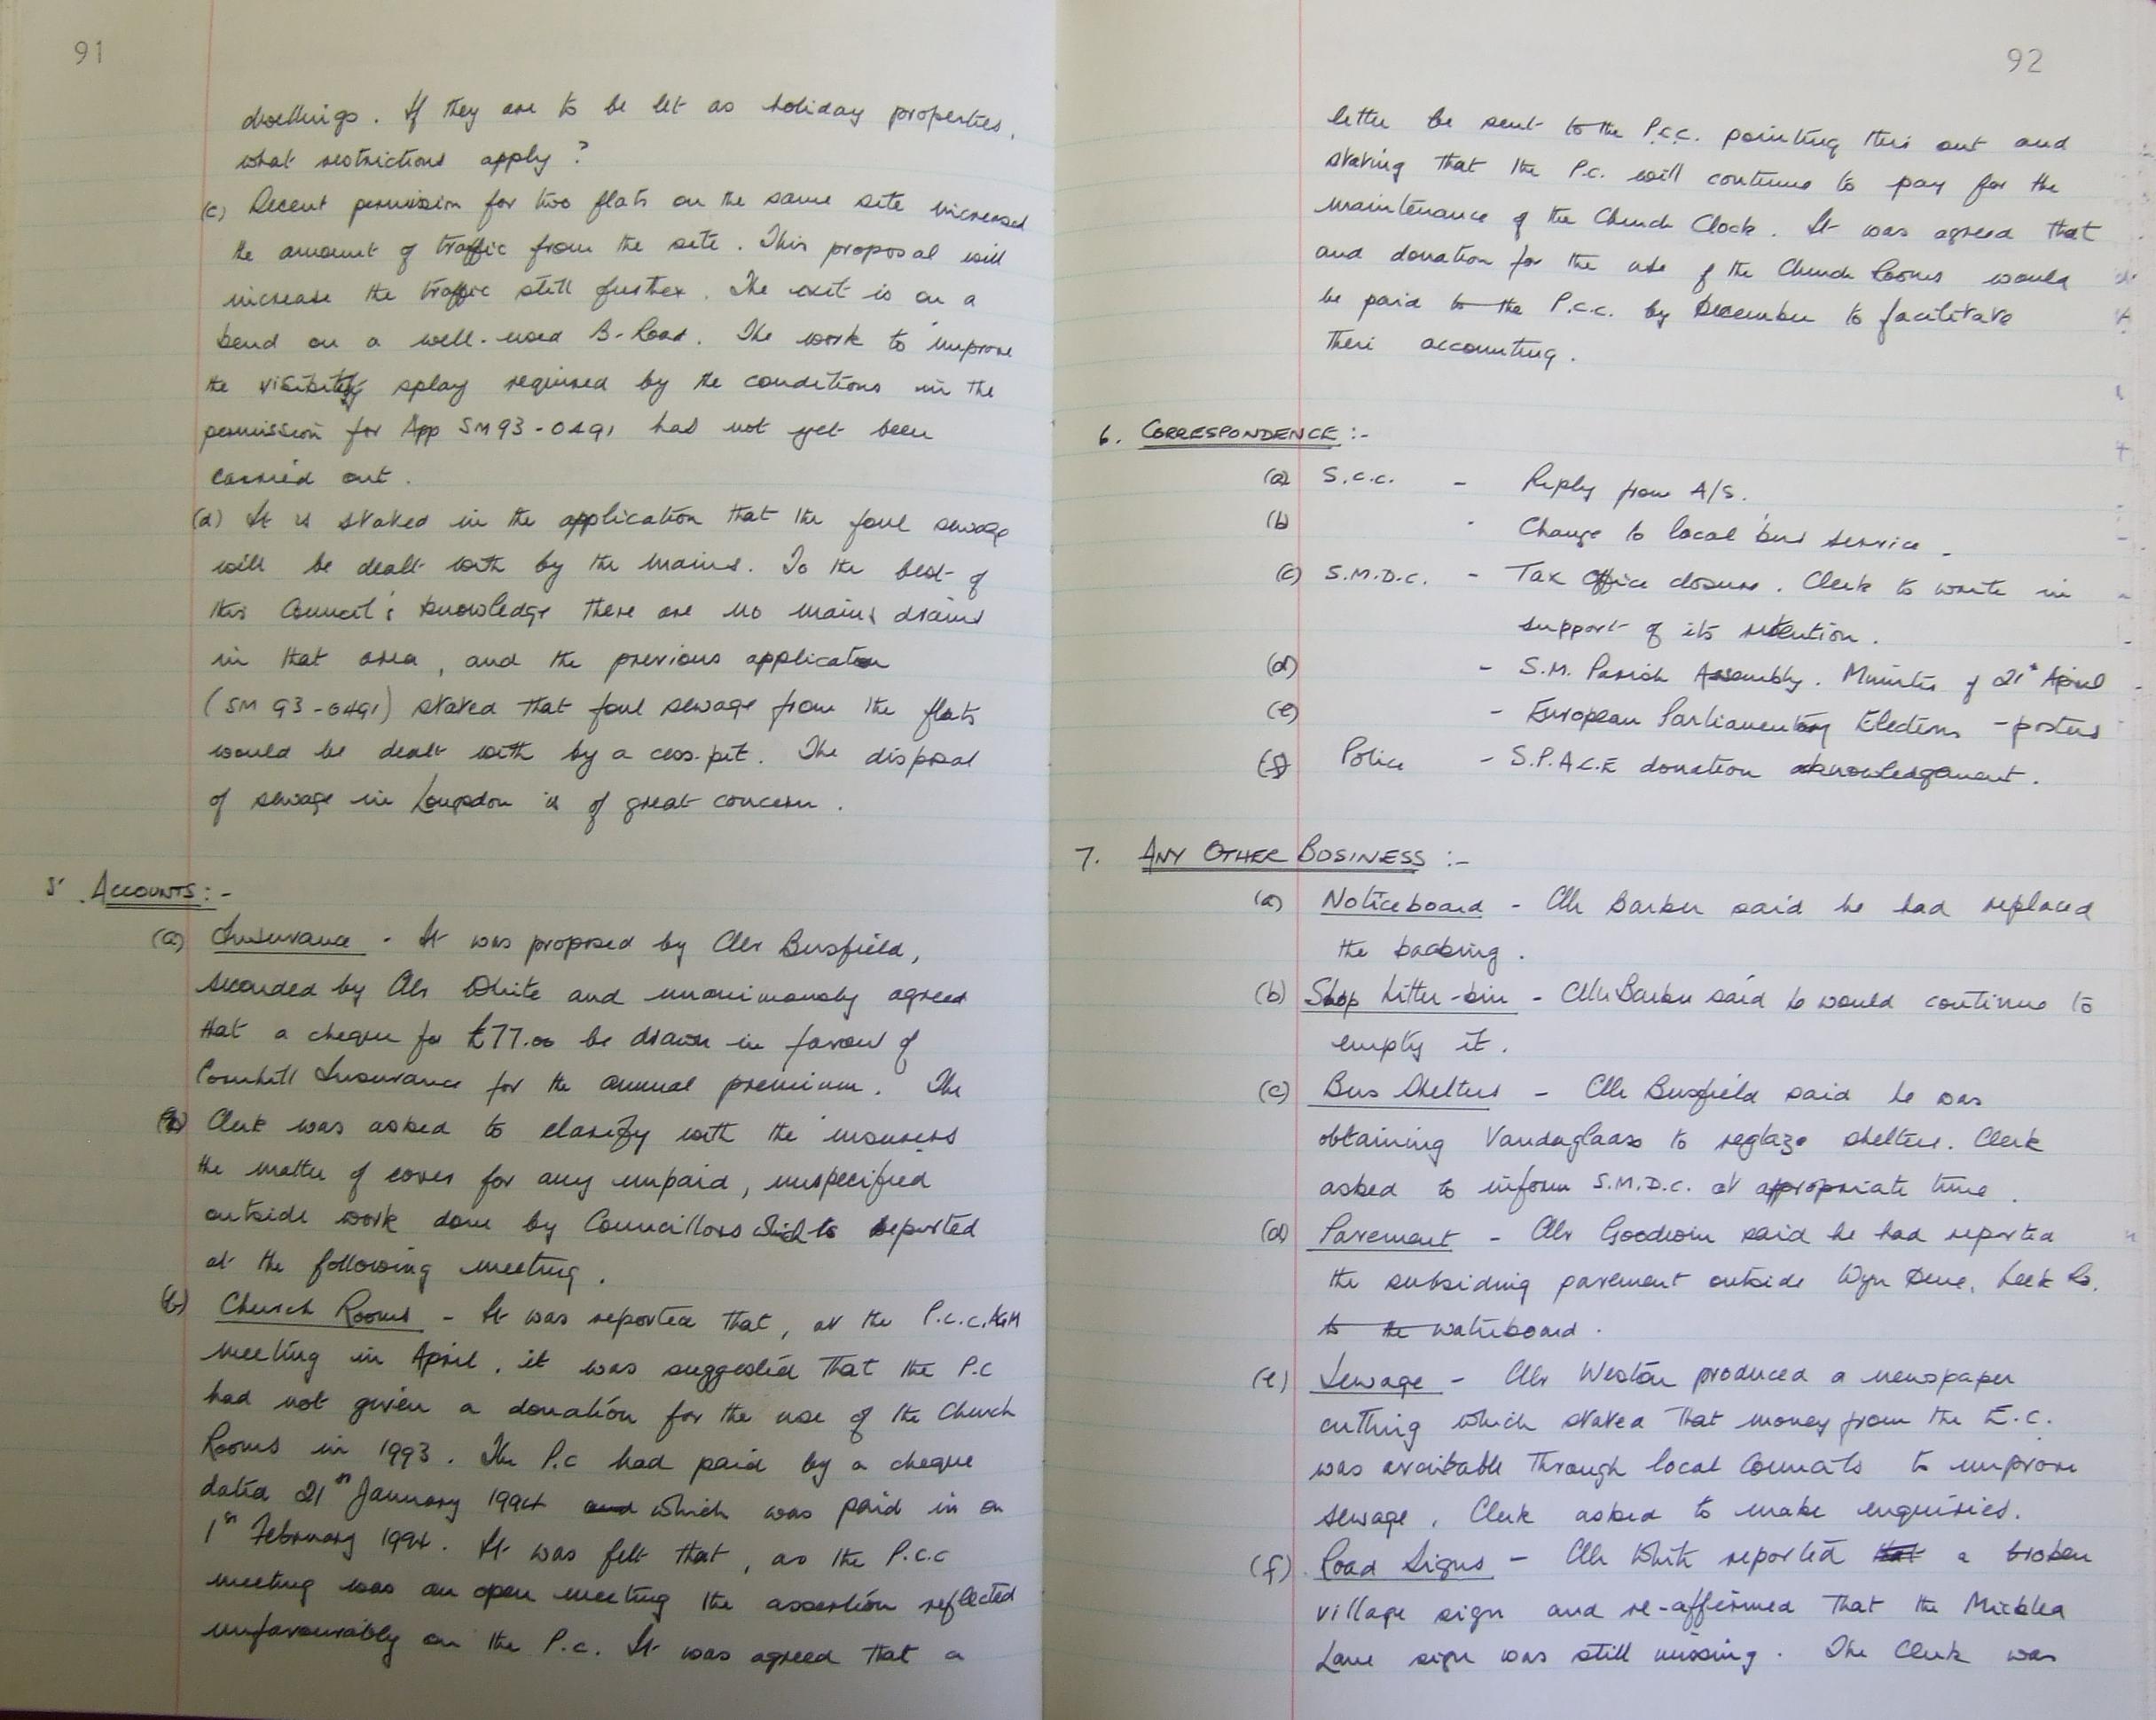 91
dwellings. If they are to be let as holiday properties,
what restrictions apply?
(c) Recent permission for two flats on the same site increased
the amount of traffic from the site. This proposal will
increase the traffic still further. The exit is on a
bend on a well-used B-Road. The work to improve
the visibility splay required by the conditions in the
permission for App SM93-0491 has not yet been
carried out.
(d) It is stated in the application that the foul sewage
will be dealt with by the mains. To the best of
this Council's knowledge there are no mains drains
in that area, and the previous application
(SM 93-0491) stated that foul sewage from the flats
would be dealt with by a cess-pit. The disposal
of sewage in Longsdon is of great concern.
5. ACCOUNTS:-
(a) Insurance - It was proposed by Cllr Busfield,
seconded by Cllr White and unanimously agreed
that a cheque for £77.00 be drawn in favour of
Cornhill Insurance for the annual premium. The
Clerk was asked to clarify with the insurers
the matter of cover for any unpaid, unspecified
outside work done by Councillors which is reported
at the following meeting.
(b) Church Rooms - It was reported that, at the P.C.C. AGM
meeting in April, it was suggested that the P.C
had not given a donation for the use of the Church
Rooms in 1993. The P.C had paid by a cheque
dated 21st January 1994 and which was paid in on
1st February 1994. It was felt that, as the P.C.C
meeting was an open meeting the assertion reflected
unfavourably on the P.C. It was agreed that a
92
letter be sent to the P.C.C. pointing this out and
stating that the P.C. will continue to pay for the
maintenance of the Church Clock. It was agreed that
and donation for the use of the Church Rooms would
be paid to the P.C.C. by December to facilitate
their accounting.
6. CORRESPONDENCE:-
(a) S.C.C. - Reply from A/S.
(b) - Change to local bus service.
(c) S.M.D.C. - Tax Office closure. Clerk to write in
support of its retention.
(d) - S.M. Parish Assembly. Minutes of 21st April
(e) - European Parliamentary Elections - posters
(f) Police - S.P.A.C.E donation acknowledgement.
7. ANY OTHER BUSINESS:-
(a) Noticeboard - Cllr Barker said he had replaced
the backing.
(b) Shop Litter-bin - Cllr Barker said he would continue to
empty it.
(c) Bus Shelters - Cllr Busfield said he was
obtaining Vandaglass to reglaze shelters. Clerk
asked to inform S.M.D.C. at appropriate time.
(d) Pavement - Cllr Goodwin said he had reported
the subsiding pavement outside Wyn Dene, Leek Rd.
to the waterboard.
(e) Sewage - Cllr Weston produced a newspaper
cutting which stated that money from the E.C.
was available through local Councils to improve
sewage. Clerk asked to make enquiries.
(f) Road Signs - Cllr White reported that a broken
village sign and re-affirmed that the Micklea
Lane sign was still missing. The Clerk was